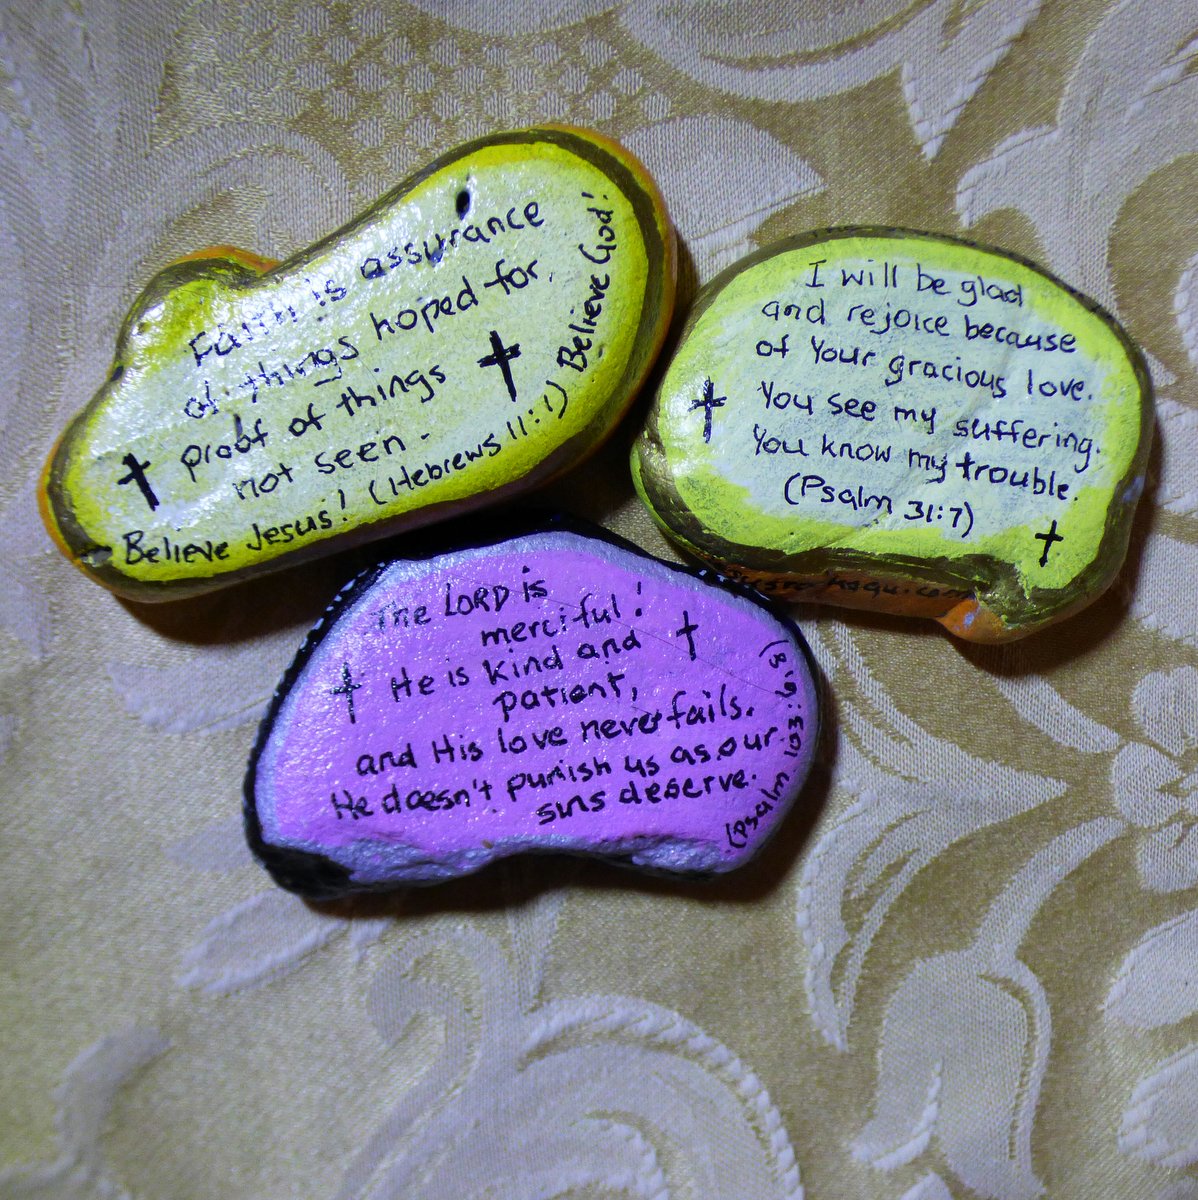 Faith is assurance
of things hoped for,
proof of things
not seen.
(Hebrews 11:1)
Believe Jesus!
Believe God!
I will be glad
and rejoice because
of Your gracious love.
You see my suffering.
You know my trouble.
(Psalm 31:7)
The LORD is
merciful!
He is kind and
patient,
and His love never fails.
He doesn't punish us as our
sins deserve.
(Psalm 103:8,9)